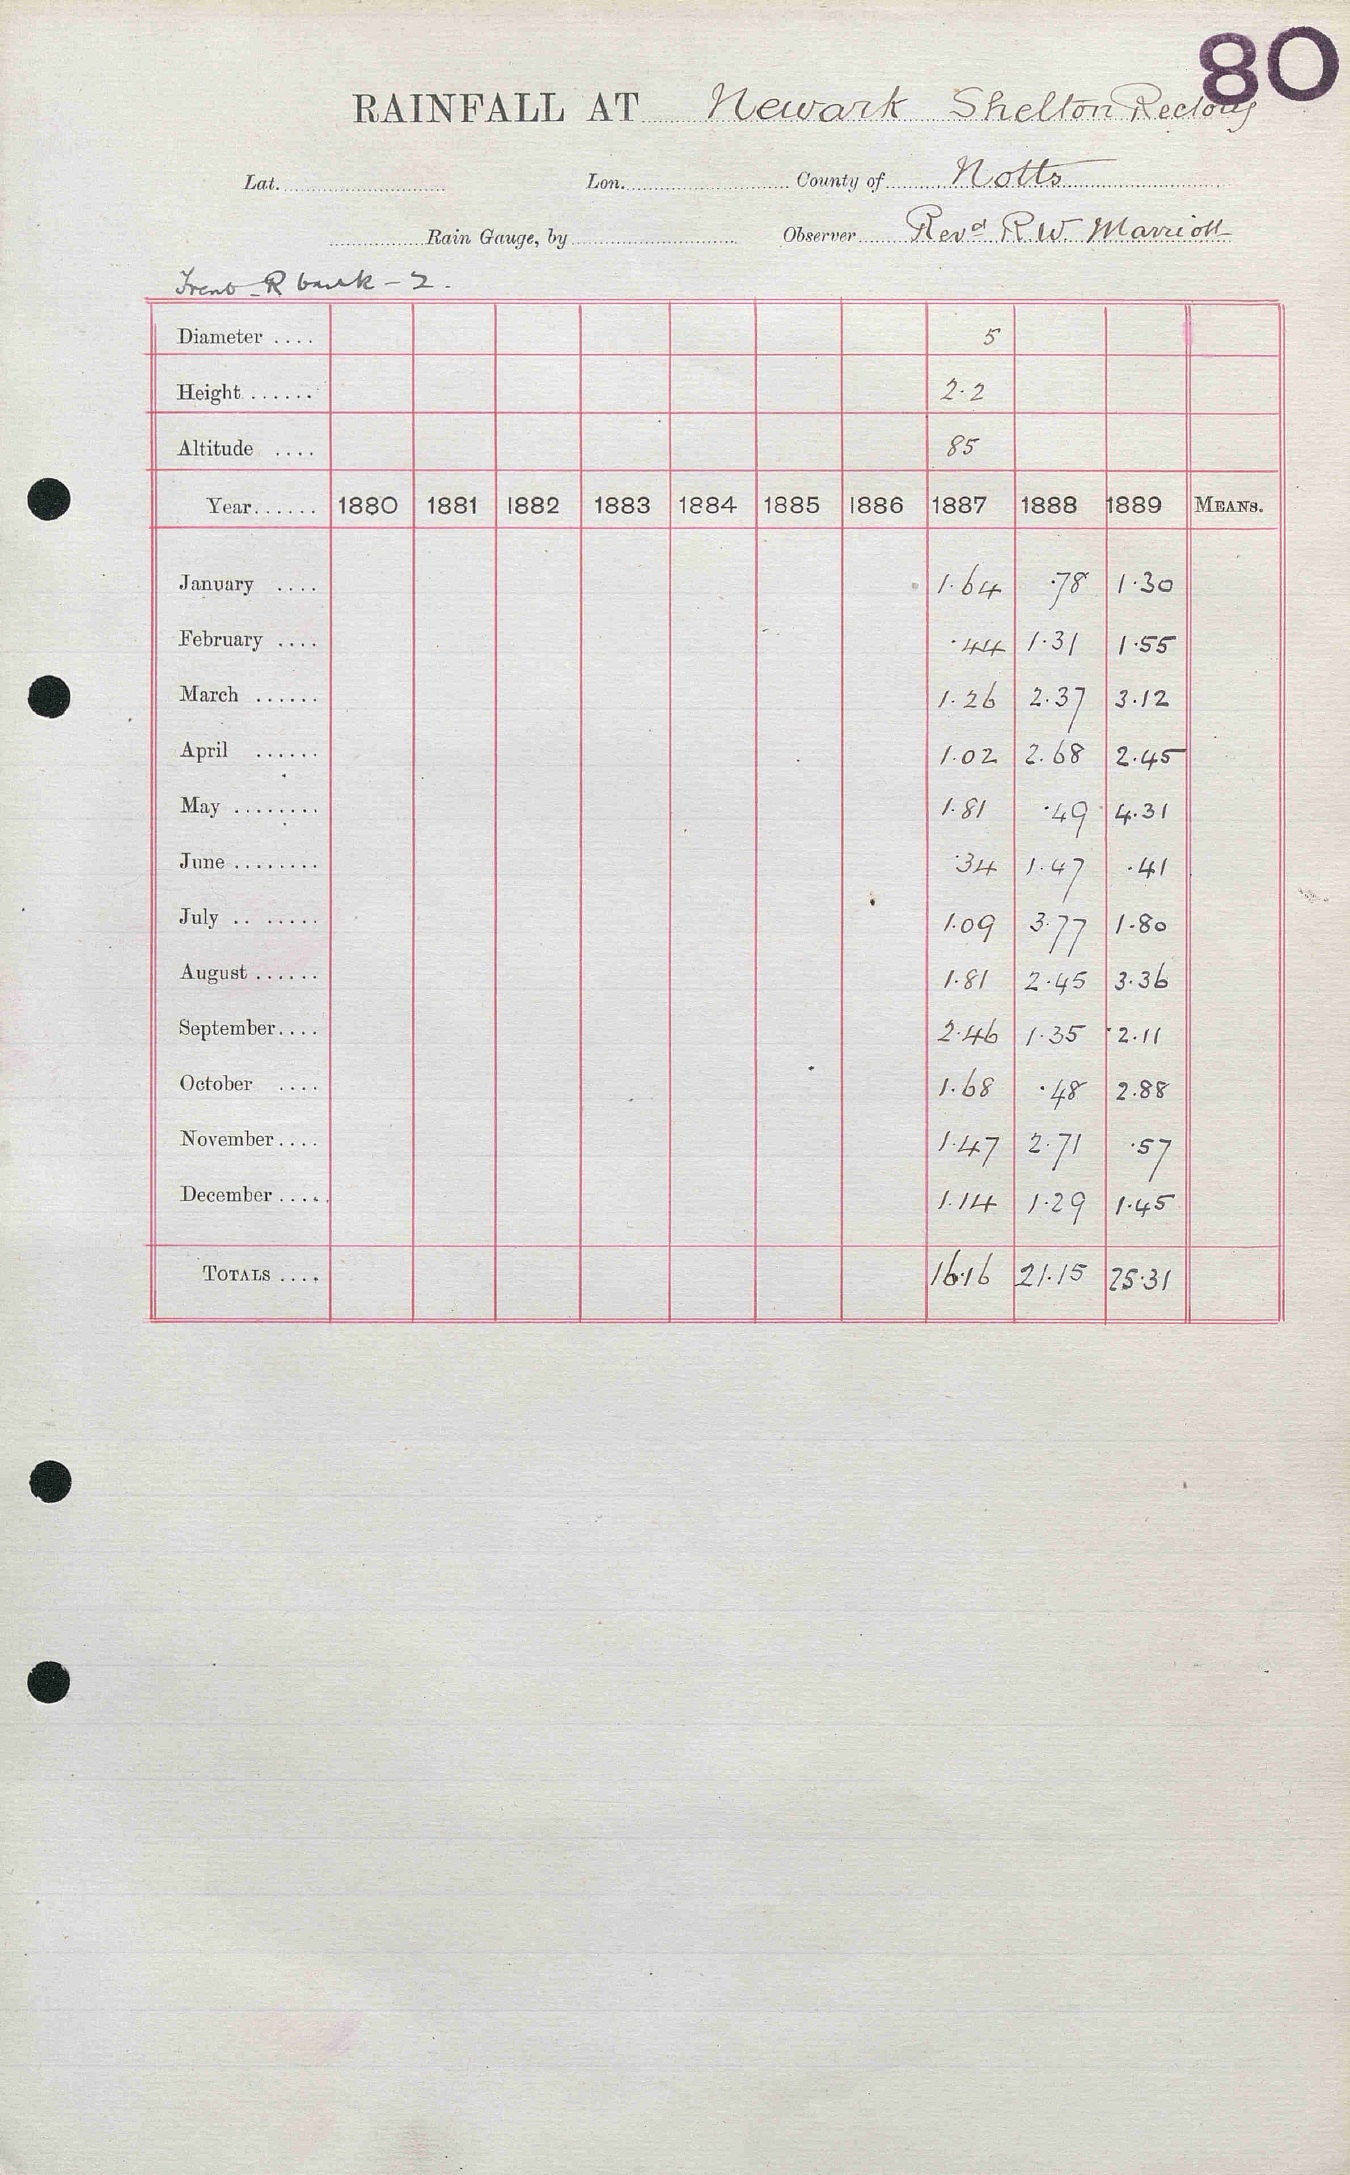 80
RAINFALL AT Newark Shelton Rectory
Lat. Lon. County of Notts
Rain Gauge, by Observer Revd R.W. Marriott
Trent - R bank - 2.
Diameter .... 5
Height ...... 2.2
Altitude .... 85
Year...... 1880 1881 1882 1883 1884 1885 1886 1887 1888 1889 MEANS.
January .... 1.64 .78 1.30
February .... .44 1.31 1.55
March ...... 1.26 2.37 3.12
April ...... 1.02 2.68 2.45
May ........ 1.81 .49 4.31
June ........ .34 1.47 .41
July .. ..... 1.09 3.77 1.80
August ...... 1.81 2.45 3.36
September.... 2.46 1.35 2.11
October .... 1.68 .48 2.88
November.... 1.47 2.71 .57
December ..... 1.14 1.29 1.45
TOTALS .... 16.16 21.15 25.31